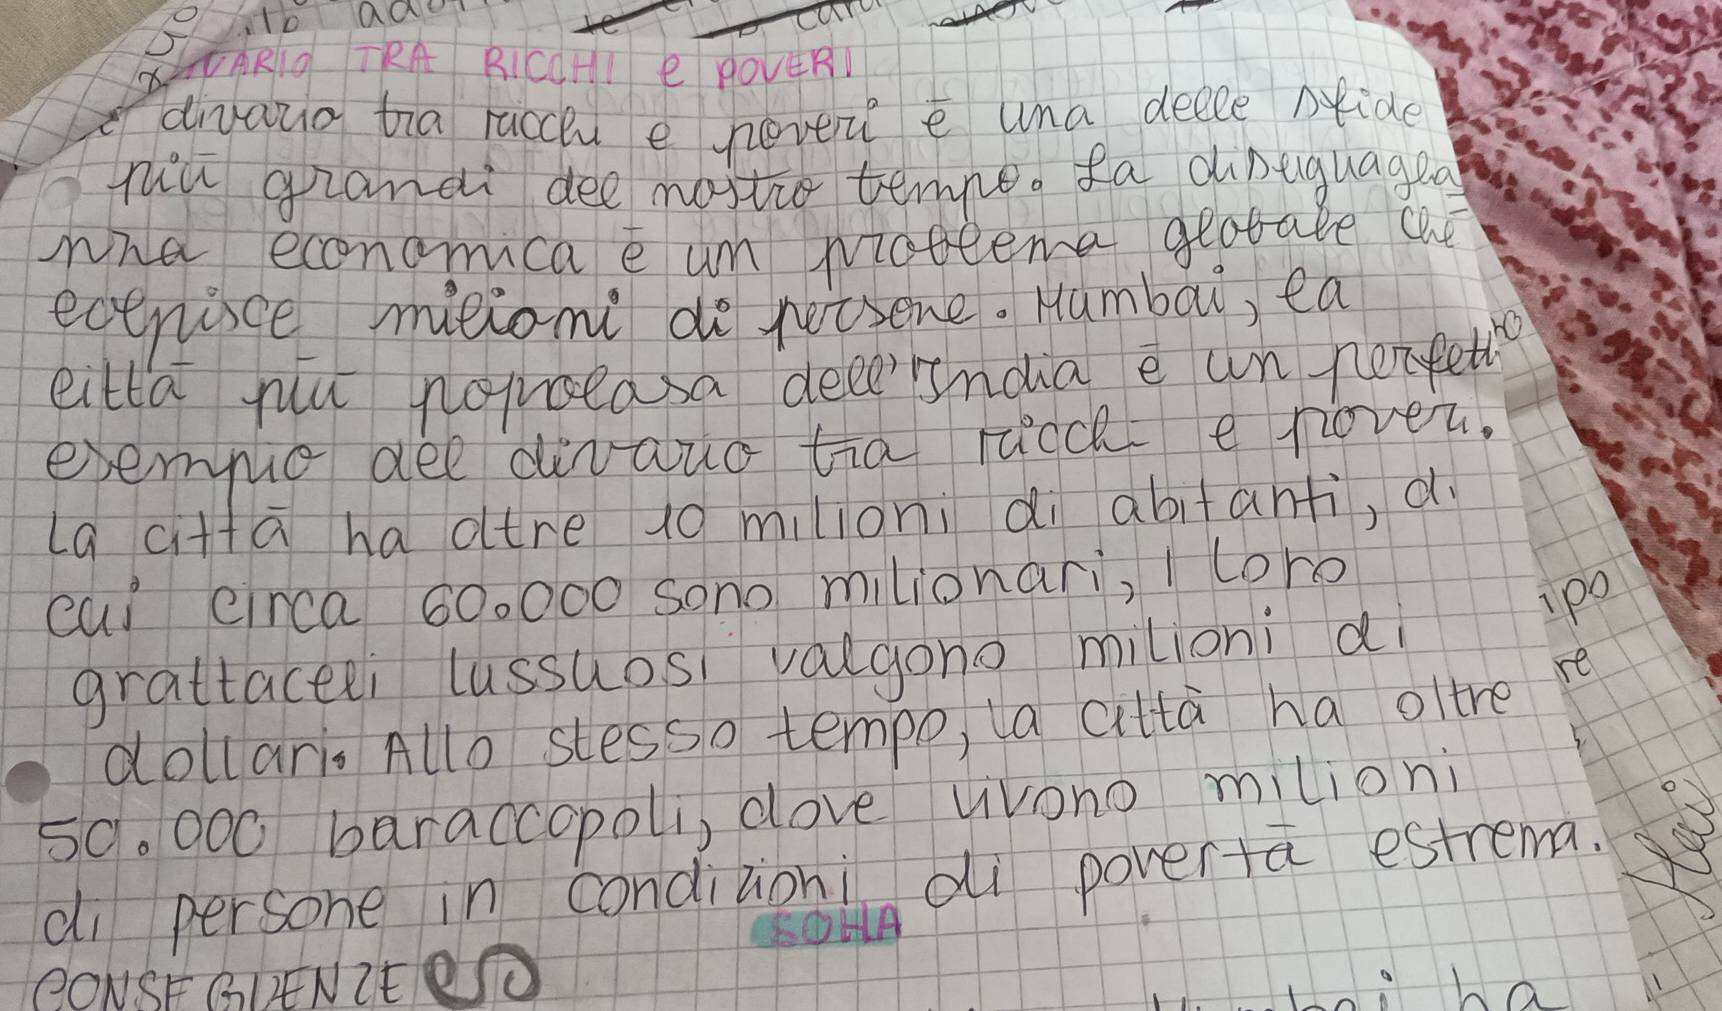 DIVARIO TRA RICCHI e POVERI
divario tra ricchi e poveri è una delle sfide
più grandi del nostro tempo. La disuguaglia
nna economica è un problema globale che
colpisce milioni di persone. Mumbai, la
città più popolasa dell'India è un perfetto
esempio del divario tra ricchi e poveri.
La città ha oltre 10 milioni di abitanti, di
cui circa 60.000 sono milionari, I loro
grattaceli lussuosi valgono milioni di
dollari. Allo stesso tempo, la città ha oltre
50.000 baraccopoli, dove vivono milioni
di persone in condizioni di povertà estrema.
SOHA
CONSEGUENZE
ha
ipo
re